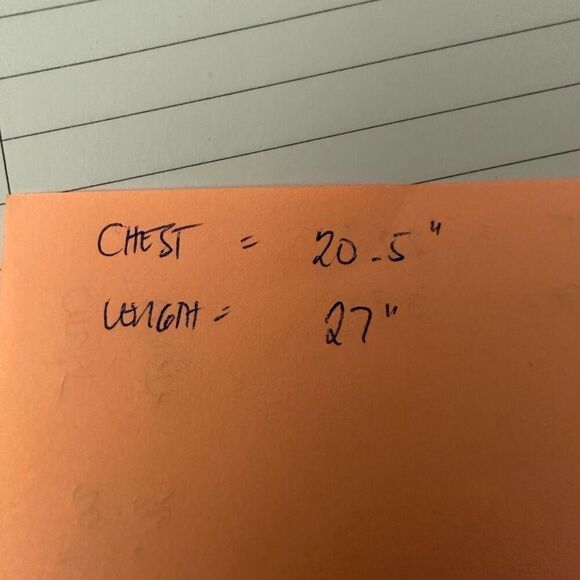 CHEST = 20.5"
LENGTH = 27"